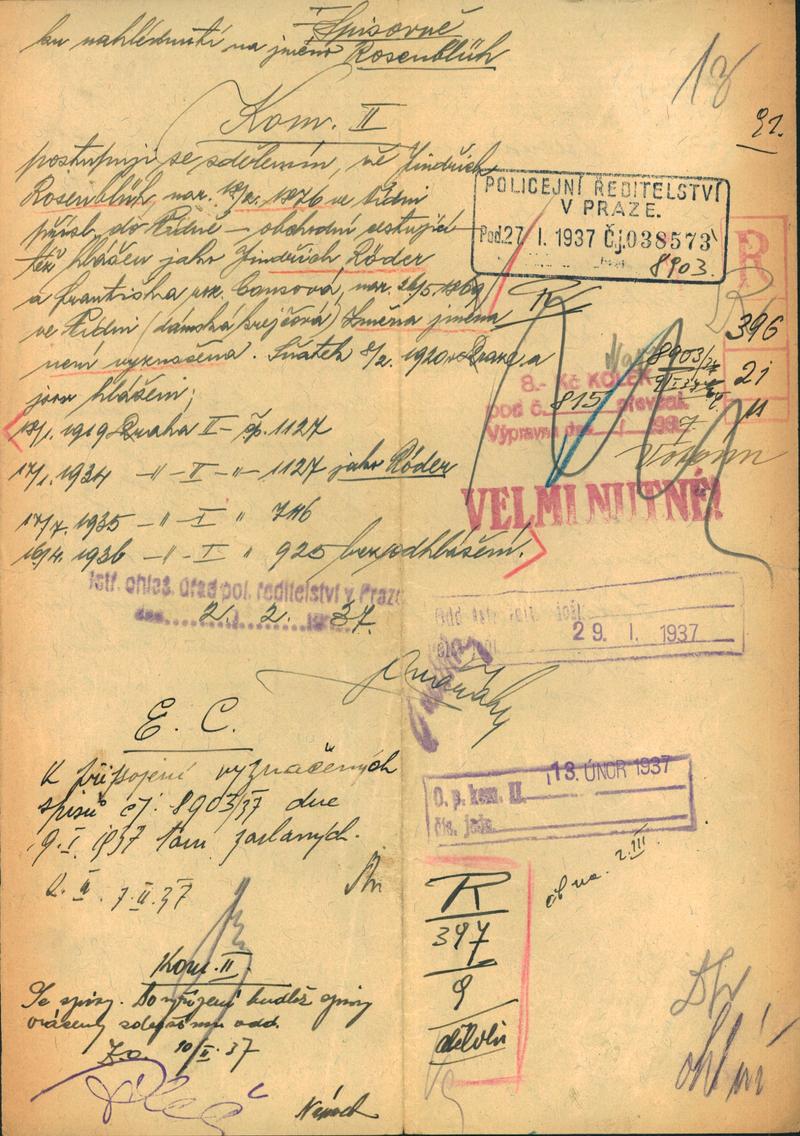 Spisovně
ku nahlédnutí na jméno Rosenblüh
13
91.
Kom. II
postupuji se sdělením, že Jindřich
Rosenblüh, nar. 1876 ve Vídni
přísl. do Vídně — obchodní cestující
též hlášen jako Jindřich Röder
a Františka roz. nar. 26/5. 1869
ve Vídni (dámská krejčová) Změna jména
není vyznačena. Sňatek 8/2. 1920 v Praze a
jsou hlášeni;
1919 Praha II - čp. 1127
17/1. 1934 -"- II -"- 1127 jako Röder
17/7. 1935 -"- I " 746
16/4. 1936 -"- I " 925 bez odhlášení.
POLICEJNÍ ŘEDITELSTVÍ
V PRAZE.
Pod. 27. I. 1937 Čj. 038573
8903.
R
R
396
21
11
8903/37
8.- Kč KOLEK
pod č. 815 převzat.
Výpravna dne
VELMI NUTNÉ!
ístř. ohlaš. úřad pol. ředitelství v Praze
dne 2. 2. 1937.
29. I. 1937
E. C.
K připojení vyznačených
spisů čj: 8903/37 dne
9. I. 1937 tam zaslaných.
7. II. 37
13. ÚNOR 1937
O. p. kom. II.
čís. jedn.
R
397
9
Kom. II.
Se spisy. Po vyřízení buďtež spisy
vráceny zdejšímu odd.
10/II. 37